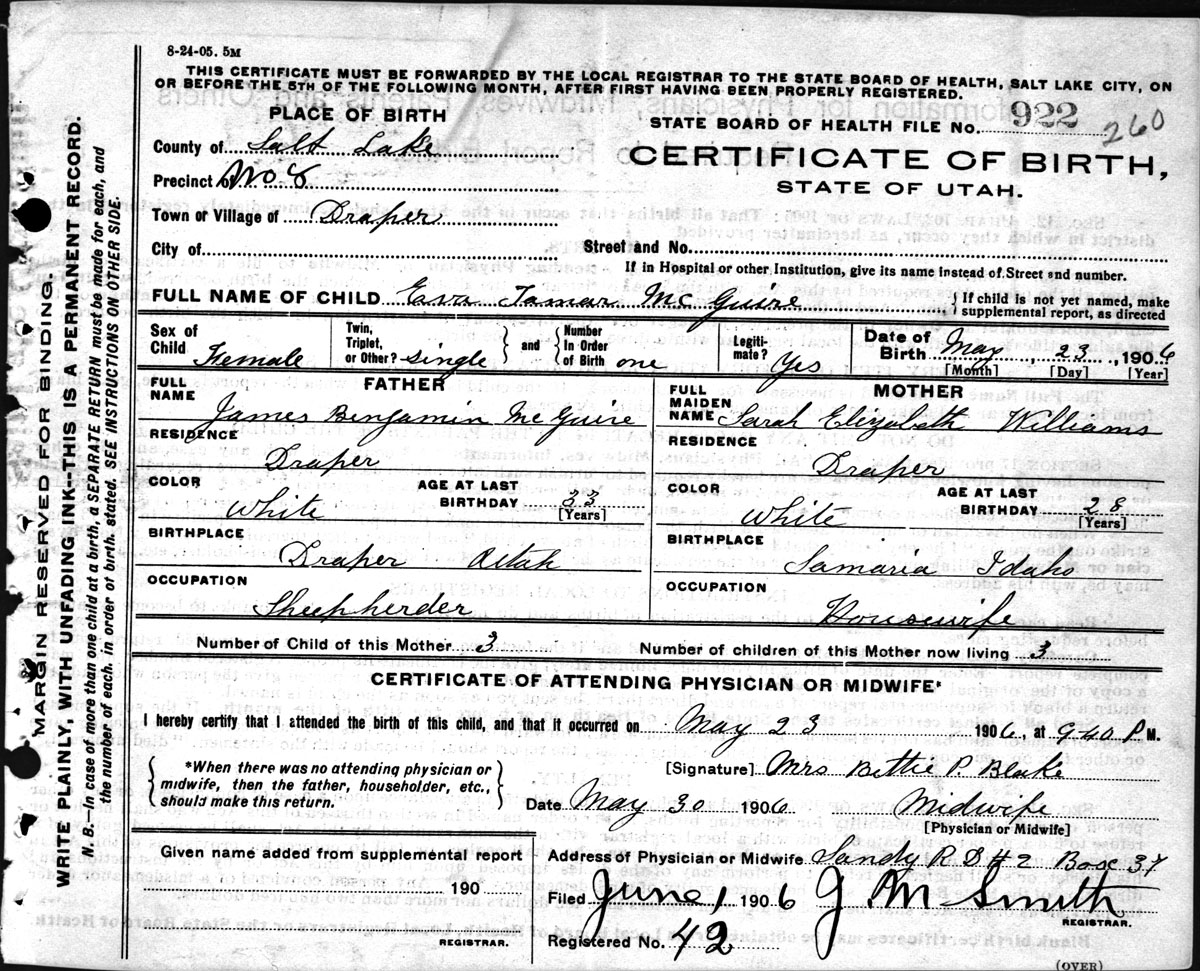 8-24-05. 5M
THIS CERTIFICATE MUST BE FORWARDED BY THE LOCAL REGISTRAR TO THE STATE BOARD OF HEALTH, SALT LAKE CITY, ON
OR BEFORE THE 5TH OF THE FOLLOWING MONTH, AFTER FIRST HAVING BEEN PROPERLY REGISTERED.
PLACE OF BIRTH
STATE BOARD OF HEALTH FILE No. 922 260
County of Salt Lake
CERTIFICATE OF BIRTH,
STATE OF UTAH.
Precinct of No 8
Town or Village of Draper
City of
Street and No.
If in Hospital or other Institution, give its name instead of Street and number.
FULL NAME OF CHILD Eva Tamar McGuire { If child is not yet named, make
supplemental report, as directed
Sex of Child Female
Twin, Triplet, or Other? single } and { Number In Order of Birth one
Legiti-mate? Yes
Date of Birth May, 23, 1906
[Month] [Day] [Year]
FATHER
FULL NAME James Benjamin McGuire
RESIDENCE
Draper
COLOR White
AGE AT LAST BIRTHDAY 33
[Years]
BIRTHPLACE
Draper Utah
OCCUPATION
Sheepherder
MOTHER
FULL MAIDEN NAME Sarah Elizabeth Williams
RESIDENCE
Draper
COLOR White
AGE AT LAST BIRTHDAY 28
[Years]
BIRTHPLACE
Samaria Idaho
OCCUPATION
Housewife
Number of Child of this Mother 3
Number of children of this Mother now living 3
CERTIFICATE OF ATTENDING PHYSICIAN OR MIDWIFE*
I hereby certify that I attended the birth of this child, and that it occurred on May 23 1906, at 9 40 P M.
{ *When there was no attending physician or
midwife, then the father, householder, etc.,
should make this return. }
[Signature] Mrs Bettie P. Blake
Date May 30 1906 Midwife
[Physician or Midwife]
Given name added from supplemental report
190
REGISTRAR.
Address of Physician or Midwife Sandy R.D #2 Box 37
Filed June 1 1906 J M Smith
REGISTRAR.
Registered No. 42
(OVER)
MARGIN RESERVED FOR BINDING.
WRITE PLAINLY, WITH UNFADING INK—THIS IS A PERMANENT RECORD.
N. B.—In case of more than one child at a birth, a SEPARATE RETURN must be made for each, and
the number of each, in order of birth, stated. SEE INSTRUCTIONS ON OTHER SIDE.